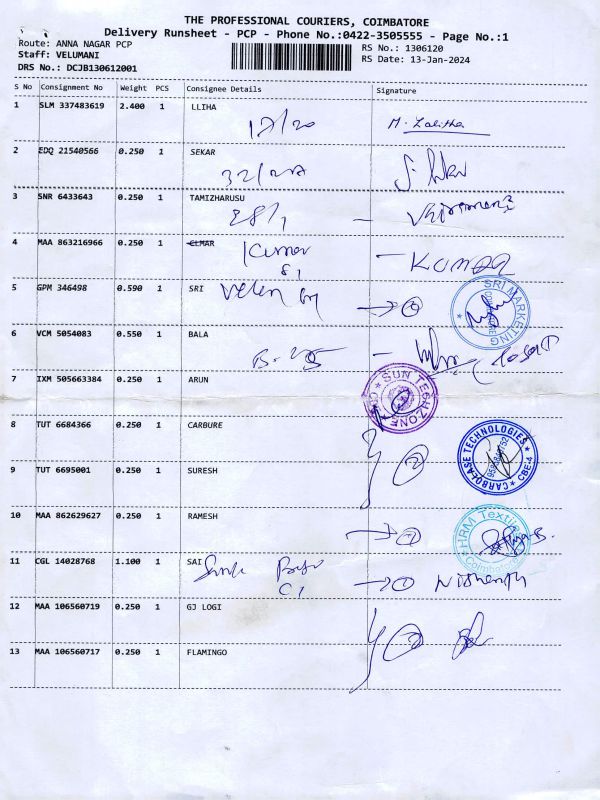 THE PROFESSIONAL COURIERS, COIMBATORE
Delivery Runsheet - PCP - Phone No.:0422-3505555 - Page No.:1
Route: ANNA NAGAR PCP
RS No.: 1306120
Staff: VELUMANI
RS Date: 13-Jan-2024
DRS No.: DCJB130612001
S No Consignment No Weight PCS Consignee Details Signature
1 SLM 337483619 2.400 1 LLIHA
17/20 M. Lalitha
2 EDQ 21540566 0.250 1 SEKAR
3 SNR 6433643 0.250 1 TAMIZHARUSU
28/1
4 MAA 863216966 0.250 1 CLMAR Kumar
KUMAR
5 GPM 346498 0.590 1 SRI
SRI MARKETING
6 VCM 5054083 0.550 1 BALA
7 IXM 505663384 0.250 1 ARUN
SUN TECHZONE
8 TUT 6684366 0.250 1 CARBURE
CARBOLASE TECHNOLOGIES
CBE-4
9 TUT 6695001 0.250 1 SURESH
2
10 MAA 862629627 0.250 1 RAMESH
HRM Textile
Coimbatore
11 CGL 14028768 1.100 1 SAI
1 Nishanth
12 MAA 106560719 0.250 1 GJ LOGI
2
13 MAA 106560717 0.250 1 FLAMINGO